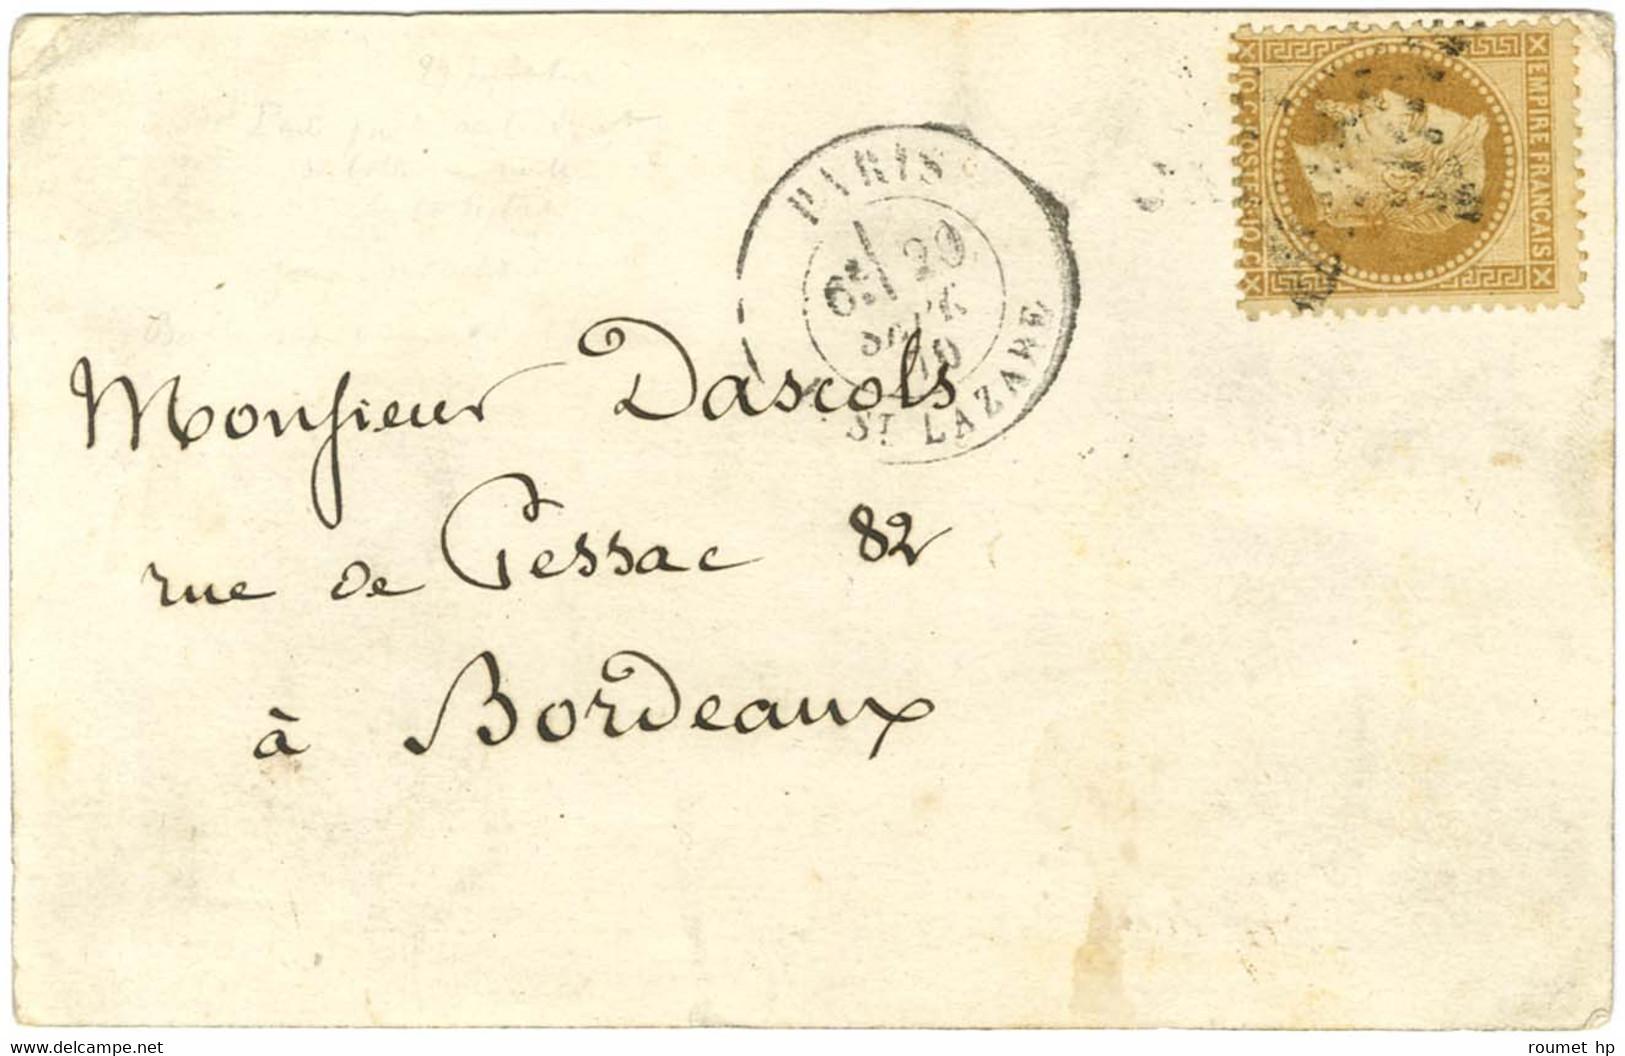 PARIS
6E 20
SEPT.
70
ST LAZARE
EMPIRE FRANCAIS
10 C. POSTES 10 C.
Monsieur Dascols
rue de Pessac 82
à Bordeaux
www.delcampe.net
roumet hp